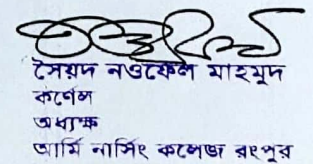 সৈয়দ নওফেল মাহমুদ
কর্নেল
অধ্যক্ষ
আর্মি নার্সিং কলেজ রংপুর